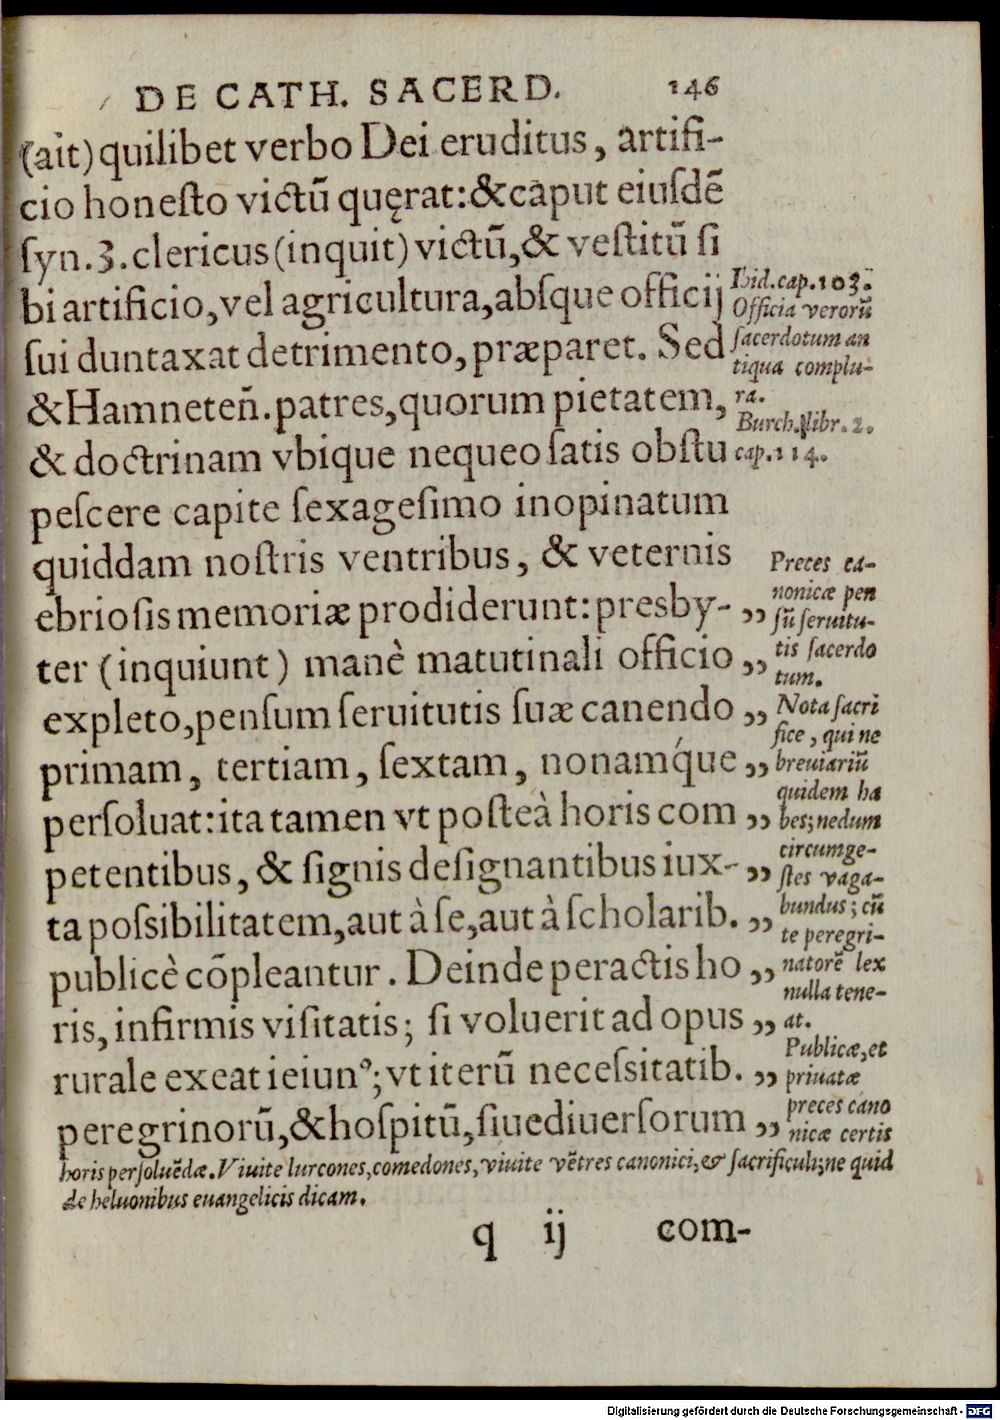 DE CATH. SACERD. 146
(ait) quilibet verbo Dei eruditus, artifi-
cio honeſto victū quęrat: & caput eiuſdē
ſyn. 3. clericus (inquit) victū, & veſtitū ſi
bi artificio, vel agricultura, abſque officij
ſui duntaxat detrimento, præparet. Sed
& Hamneteñ. patres, quorum pietatem,
& doctrinam vbique nequeo ſatis obſtu
peſcere capite ſexageſimo inopinatum
quiddam noſtris ventribus, & veternis
ebrioſis memoriæ prodiderunt: presby- ,,
ter (inquiunt) manè matutinali officio ,,
expleto, penſum ſeruitutis ſuæ canendo ,,
primam, tertiam, ſextam, nonamq́ue ,,
perſoluat: ita tamen vt poſteà horis com ,,
petentibus, & ſignis deſignantibus iux- ,,
ta poſsibilitatem, aut à ſe, aut à ſcholarib. ,,
publicè cōpleantur. Deinde peractis ho ,,
ris, infirmis viſitatis; ſi voluerit ad opus ,,
rurale exeat ieiunꝰ; vt iterū neceſsitatib. ,,
peregrinorū, & hoſpitū, ſiue diuerſorum ,,
Ibid. cap. 103.
Officia verorū
ſacerdotum an
tiqua complu-
ra.
Burch. libr. 2.
cap. 114.
Preces ca-
nonicæ pen
ſū ſeruitu-
tis ſacerdo
tum.
Nota ſacri
fice, qui ne
breuiariū
quidem ha
bes; nedum
circumge-
ſtes vaga-
bundus; cū
te peregri-
natorē lex
nulla tene-
at.
Publicæ, et
priuatæ
preces cano
nicæ certis
horis perſoluēdæ. Viuite lurcones, comedones, viuite vētres canonici, & ſacrificuli; ne quid
de heluonibus euangelicis dicam.
q ij com-
Digitalisierung gefördert durch die Deutsche Forschungsgemeinschaft - DFG